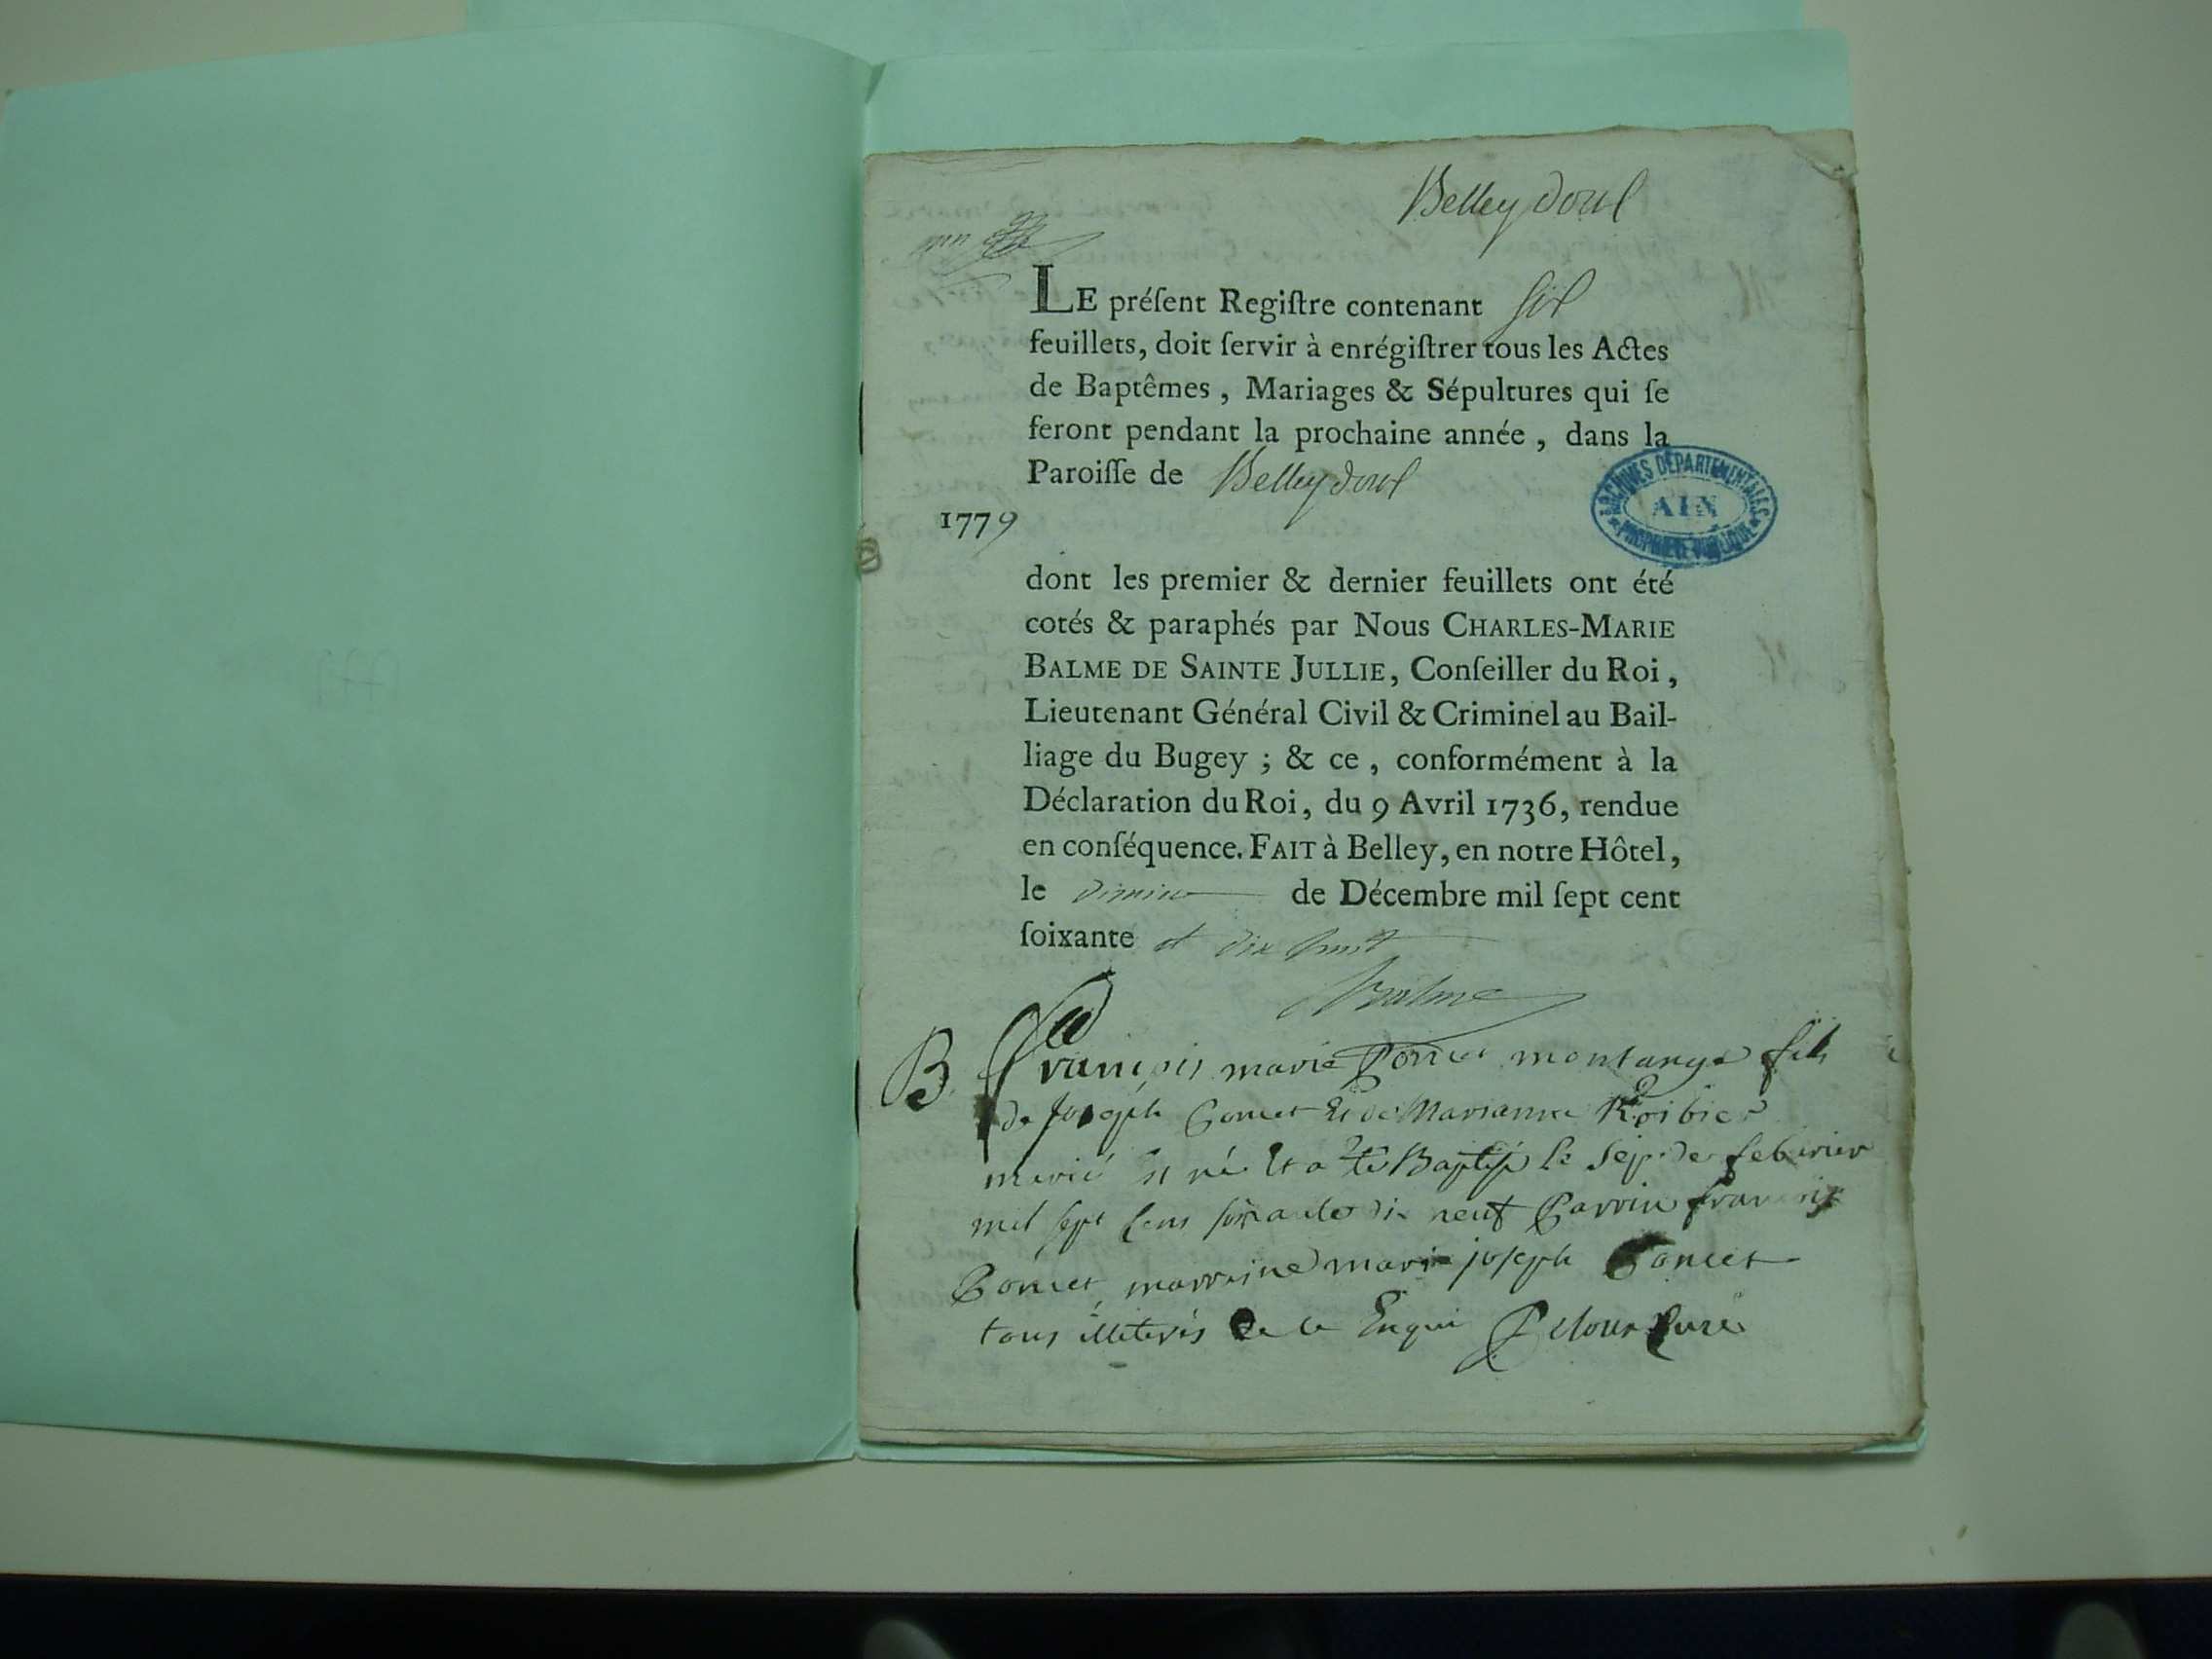 Belleydoux
LE préſent Regiſtre contenant six
feuillets, doit ſervir à enrégiſtrer tous les Actes
de Baptêmes, Mariages & Sépultures qui ſe
feront pendant la prochaine année, dans la
Paroiſſe de Belleydoux
ARCHIVES DÉPARTEMENTALES
AIN
PROPRIÉTÉ PUBLIQUE
1779
dont les premier & dernier feuillets ont été
cotés & paraphés par Nous CHARLES-MARIE
BALME DE SAINTE JULLIE, Conſeiller du Roi,
Lieutenant Général Civil & Criminel au Bail-
liage du Bugey; & ce, conformément à la
Déclaration du Roi, du 9 Avril 1736, rendue
en conſéquence. FAIT à Belley, en notre Hôtel,
le de Décembre mil ſept cent
ſoixante et dix huit
Balme
B. françois marie Poncet montange fils
de joseph Poncet Et de Marianne
marié né Et a Baptisé le sept de
mil sept cens soixante dix neuf Parrin françois
Poncet, marraine marie joseph Poncet
tous illiterés de ce Enquis curé